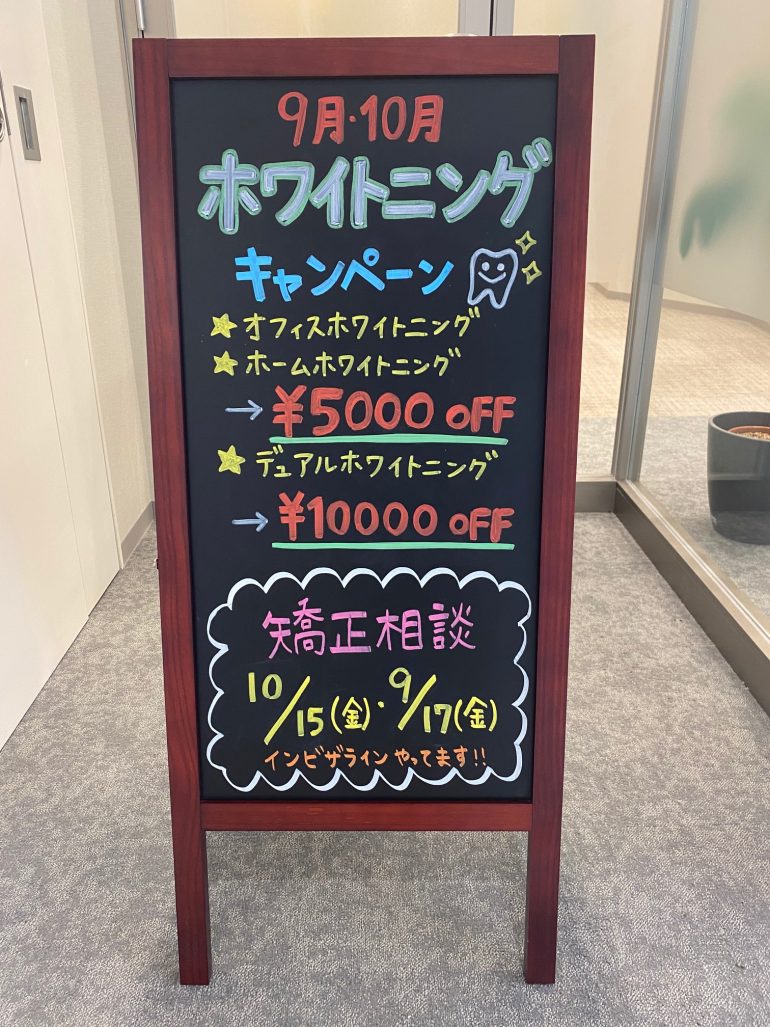 9月・10月
ホワイトニング
キャンペーン
オフィスホワイトニング
ホームホワイトニング
→ ¥5000 OFF
デュアルホワイトニング
→ ¥10000 OFF
矯正相談
10/15(金)・9/17(金)
インビザラインやってます!!